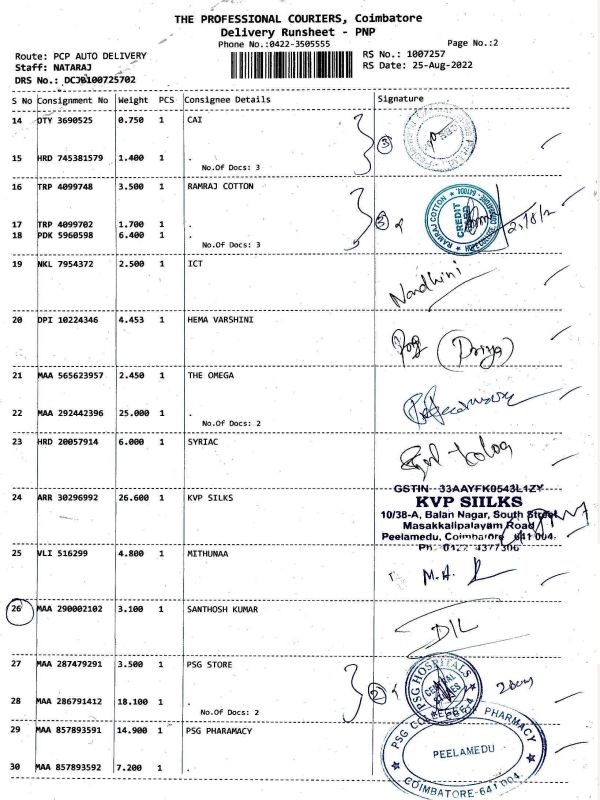 THE PROFESSIONAL COURIERS, Coimbatore
Delivery Runsheet - PNP
Phone No.:0422-3505555
Page No.:2
Route: PCP AUTO DELIVERY
RS No.: 1007257
Staff: NATARAJ
RS Date: 25-Aug-2022
DRS No.: DCJB100725702
S No Consignment No Weight PCS Consignee Details Signature
14 DTY 3690525 0.750 1 CAI
3
15 HRD 745381579 1.400 1 .
No.Of Docs: 3
16 TRP 4099748 3.500 1 RAMRAJ COTTON
RAMRAJ COTTON
CREDIT
17 TRP 4099702 1.700 1 .
18 PDK 5960598 6.400 1 .
No.Of Docs: 3
19 NKL 7954372 2.500 1 ICT
Nandhini
20 DPI 10224346 4.453 1 HEMA VARSHINI
(Priya)
21 MAA 565623957 2.450 1 THE OMEGA
22 MAA 292442396 25.000 1 .
No.Of Docs: 2
23 HRD 20057914 6.000 1 SYRIAC
GSTIN 33AAYFK0543L1ZY
24 ARR 30296992 26.600 1 KVP SILKS
KVP SIILKS
10/38-A, Balan Nagar, South Street
Masakkalipalayam Road
Peelamedu, Coimbatore 641 004.
Ph: 0422 4377306
25 VLI 516299 4.800 1 MITHUNAA
M.A.
26 MAA 290002102 3.100 1 SANTHOSH KUMAR
DIL
27 MAA 287479291 3.500 1 PSG STORE
2
PSG HOSPITALS
CENTRAL
STORES
28 MAA 286791412 18.100 1 .
No.Of Docs: 2
29 MAA 857893591 14.900 1 PSG PHARAMACY
PHARMACY
PEELAMEDU
COIMBATORE-641 004.
30 MAA 857893592 7.200 1 .